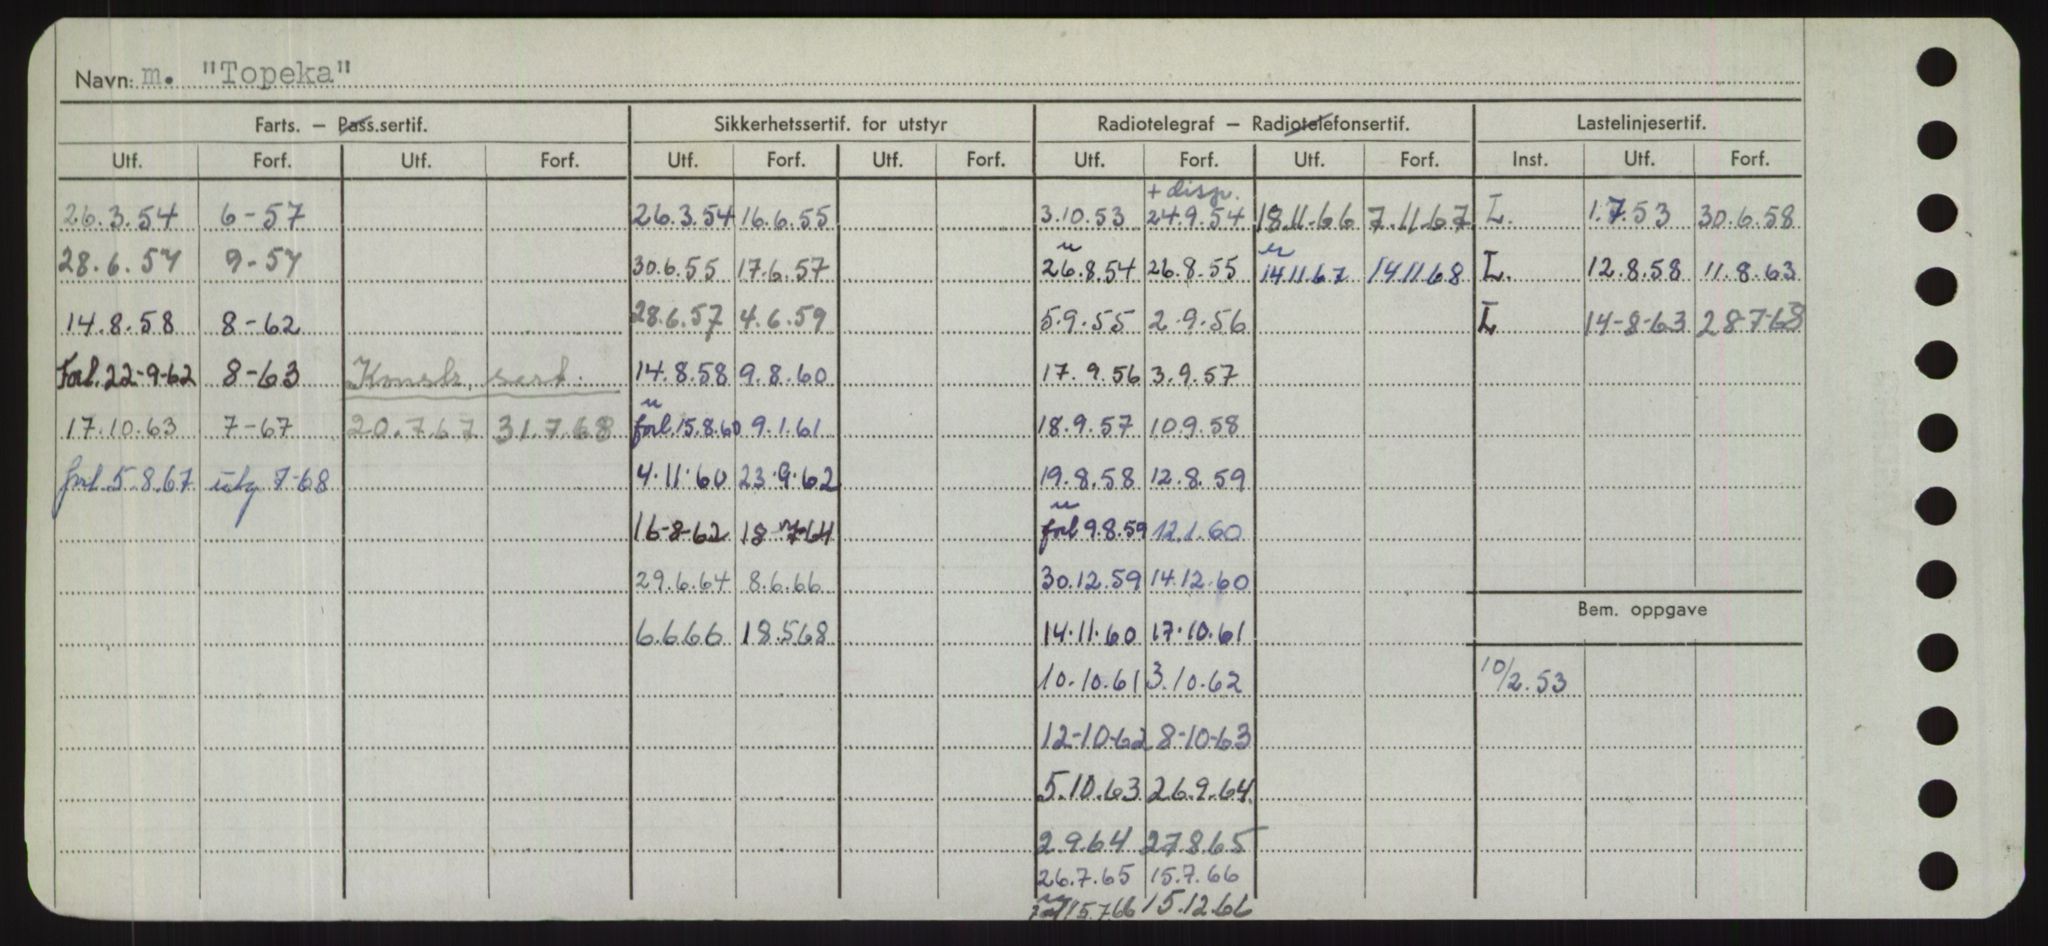 Navn: m. "Topeka"
Farts. — Pass.sertif. Sikkerhetssertif. for utstyr Radiotelegraf — Radiotelefonsertif. Lastelinjesertif.
Utf. Forf. Utf. Forf. Utf. Forf. Utf. Forf. Utf. Forf. Utf. Forf. Inst. Utf. Forf.
+ disp.
26.3.54 6-57 26.3.54 16.6.55 3.10.53 24.9.54 18.11.66 7.11.67 L. 1.7.53 30.6.58
u
28.6.57 9-57 30.6.55 17.6.57 26.8.54 26.8.55 14.11.67 14.11.68 L. 12.8.58 11.8.63
14.8.58 8-62 28.6.57 4.6.59 5.9.55 2.9.56 L 14-8-63 28-7-68
Forl. 22-9-62 8-63 Konstr. sert. 14.8.58 9.8.60 17.9.56 3.9.57
u
17.10.63 7-67 20.7.67 31.7.68 forl 15.8.60 9.1.61 18.9.57 10.9.58
forl. 5.8.67 utg 7-68 4.11.60 23.9.62 19.8.58 12.8.59
u
16-8-62 18-7-64 forl 9.8.59 12.1.60
29.6.64 8.6.66 30.12.59 14.12.60
Bem. oppgave
6.6.66 18.5.68 14.11.60 17.10.61
10.10.61 3.10.62 10/2.53
12-10-62 8-10-63
5.10.63 26.9.64
2.9.64 27.8.65
26.7.65 15.7.66
15.7.66 15.12.66